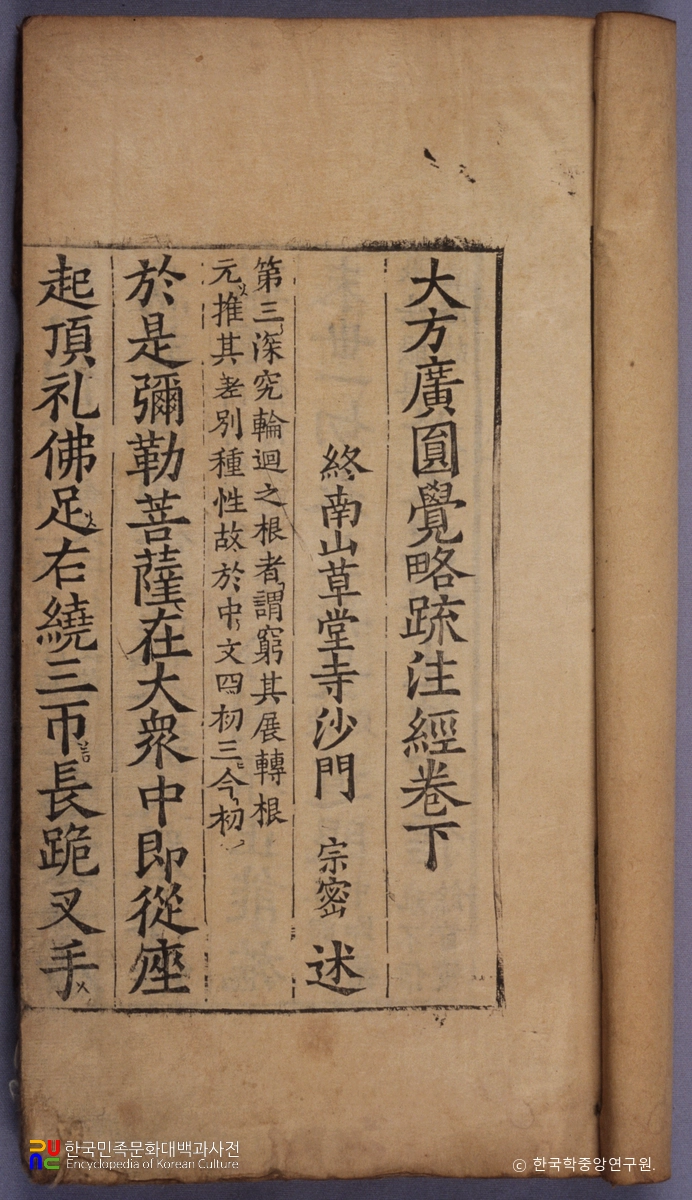 大方廣圎覺略䟽注經卷下
終南山草堂寺沙門 宗密 述
第三深究輪迴之根者謂窮其展轉根
元推其差別種性故於中文四初三今初
於是彌勒菩薩在大衆中即從座
起頂礼佛足右繞三帀長跪叉手
한국민족문화대백과사전
Encyclopedia of Korean Culture
© 한국학중앙연구원.